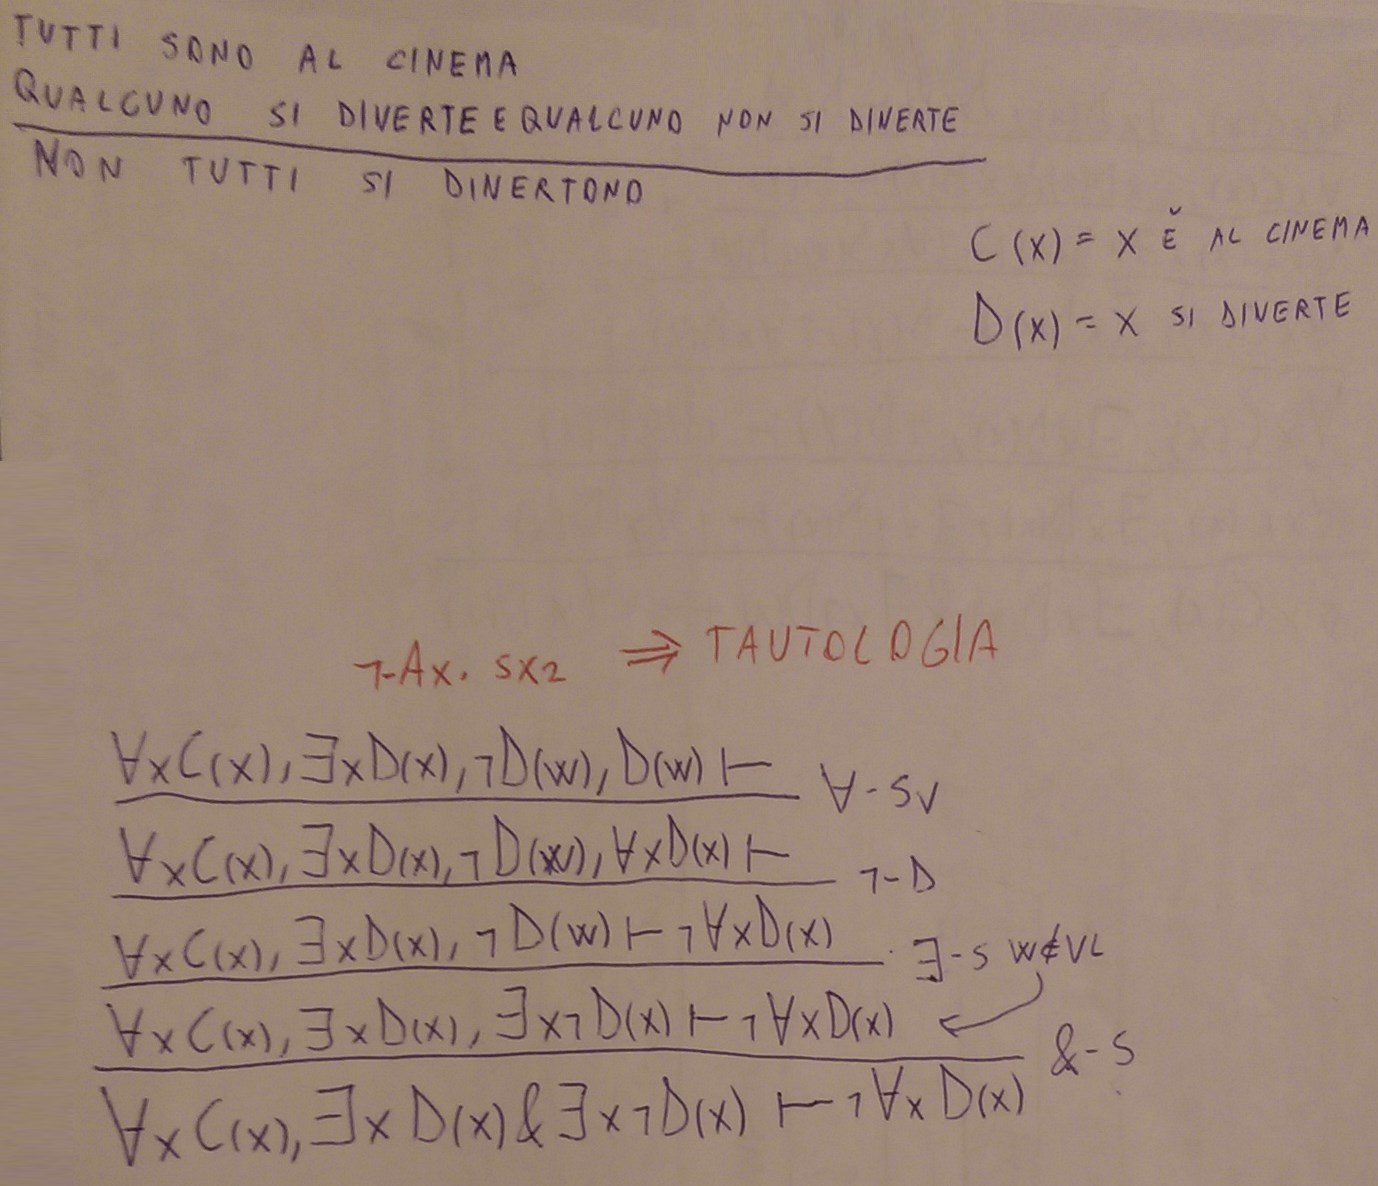 TUTTI SONO AL CINEMA
QUALCUNO SI DIVERTE E QUALCUNO NON SI DIVERTE
NON TUTTI SI DIVERTONO
C(x) = x È AL CINEMA
D(x) = x SI DIVERTE
¬-Ax. sx2 ⇒ TAUTOLOGIA
∀xC(x), ∃xD(x), ¬D(w), D(w) ⊢ ∀-sv
∀xC(x), ∃xD(x), ¬D(w), ∀xD(x) ⊢ ¬-D
∀xC(x), ∃xD(x), ¬D(w) ⊢ ¬∀xD(x) ∃-s w∉VL
∀xC(x), ∃xD(x), ∃x¬D(x) ⊢ ¬∀xD(x) &-s
∀xC(x), ∃xD(x)&∃x¬D(x) ⊢ ¬∀xD(x)